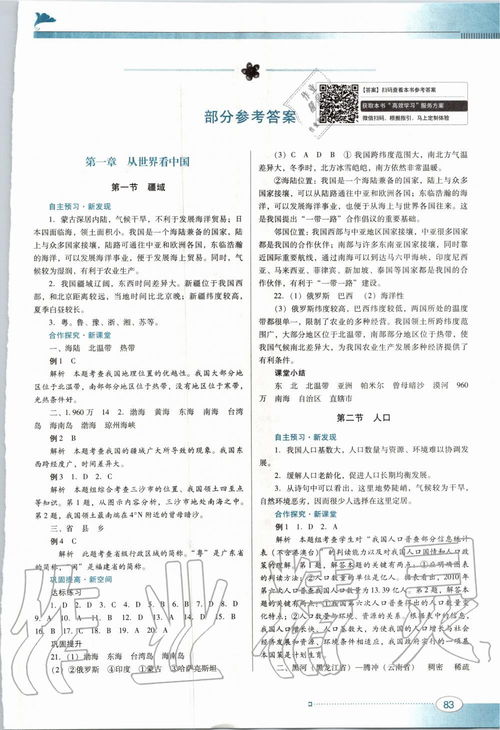 部分参考答案
【答案】扫码查看本书参考答案
获取本书“高效学习”服务方案
微信扫码，根据指引，马上定制体验
第一章 从世界看中国
第一节 疆域
自主预习·新发现
1. 蒙古深居内陆，气候干旱，不利于发展海洋贸易；日
本四面临海，领土面积小。我国是一个海陆兼备的国家，陆
上与众多国家接壤，陆路可通往中亚和欧洲各国，东临浩瀚
的海洋，可以发展海洋事业，便于发展海上贸易。同时，气
候较为湿润，有利于农业生产。
2. 我国疆域辽阔，东西时间差异大。新疆位于我国西
部，和北京距离较远，当地时间比北京晚；新疆纬度较高，
夏季白昼较长。
3. 粤、鲁、豫、浙、湘、苏等。
合作探究·新课堂
一、海陆 北温带 热带
例1 C
解析 本题考查我国地理位置的优越性。我国大部分地
区位于北温带，南部部分地区位于热带，没有地区位于寒带，
光热条件好。
二、1.960万 14 2. 渤海 黄海 东海 南海 台湾
岛 海南岛 渤海 琼州海峡
例2 B
解析 本题考查我国的疆域广大所导致的现象。我国东
西跨经度广，时间差异大。
例3 1. D 2. C
解析 本题组综合考查三沙市的位置、我国领土四至点
等知识。第1题，从图示内容分析，三沙市地处南海之中。
第2题，我国领土最南端在4°N附近的曾母暗沙。
三、省 县 乡
例4 C
解析 此题考查省级行政区域的简称。“粤”是广东省
的简称，“闽”是福建省的简称。
巩固提高·新空间
达标练习
1. D 2. D 3. C 4. D 5. B 6. B 7. D 8. D
9. A 10. A 11. B 12. D 13. A 14. D 15. B
16. B 17. C 18. B 19. A 20. A
巩固提升
21. (1) 渤海 东海 台湾岛 海南岛
(2) ②俄罗斯 ④印度 ①蒙古 ③哈萨克斯坦
(3) C A D B ① 我国跨纬度范围大，南北方气温
差异大，冬季时，北方冰雪皑皑，南方依然非常温暖。
②海陆位置：我国是一个海陆兼备的国家，陆上与众多
国家接壤，可以从陆路通往中亚和欧洲各国；东临浩瀚的海
洋，可以发展海洋事业，也便于从海上与世界各国往来。这
是我国提出“一带一路”合作倡议的重要基础。
邻国位置：我国西部与中亚地区国家接壤，中亚很多国家
都是我国的合作伙伴；南部与许多东南亚国家接壤，同时靠
近国际重要航线，通过南海可以到达马六甲海峡，印度尼西
亚、马来西亚、菲律宾、新加坡、泰国等国家都是我国的合
作伙伴，有利于“一带一路”建设。
22. (1) 俄罗斯 巴西 (2) 海洋性
(3) 俄罗斯纬度较高，巴西纬度较低，两国所处的温度
带都很单一，限制了农业的多种经营。我国领土所跨纬度范
围广，大部分地区位于北温带，小部分地区位于热带，使我
国气候南北差异大，为我国农业生产发展多种经济提供了
有利条件。
课堂小结
东 北 北温带 亚洲 帕米尔 曾母暗沙 漠河 960
万 南海 自治区 直辖市
第二节 人口
自主预习·新发现
1. 我国人口基数大，人口数量与资源、环境难以协调发
展。
2. 缓解人口老龄化，促进人口长期均衡发展。
3. 从诗句中可以看出，这里地势陡峭，气候较为干旱，
自然环境恶劣，因而很少人选择在这里定居。
合作探究·新课堂
例1 1. D 2. A
解析 本题组考查学生对“我国人口普查部分信息统计
表（不含港澳台）”的判读能力以及对我国人口国情和人口政
二、黑河（黑龙江省）—腾冲（云南省） 稠密 稀疏
83